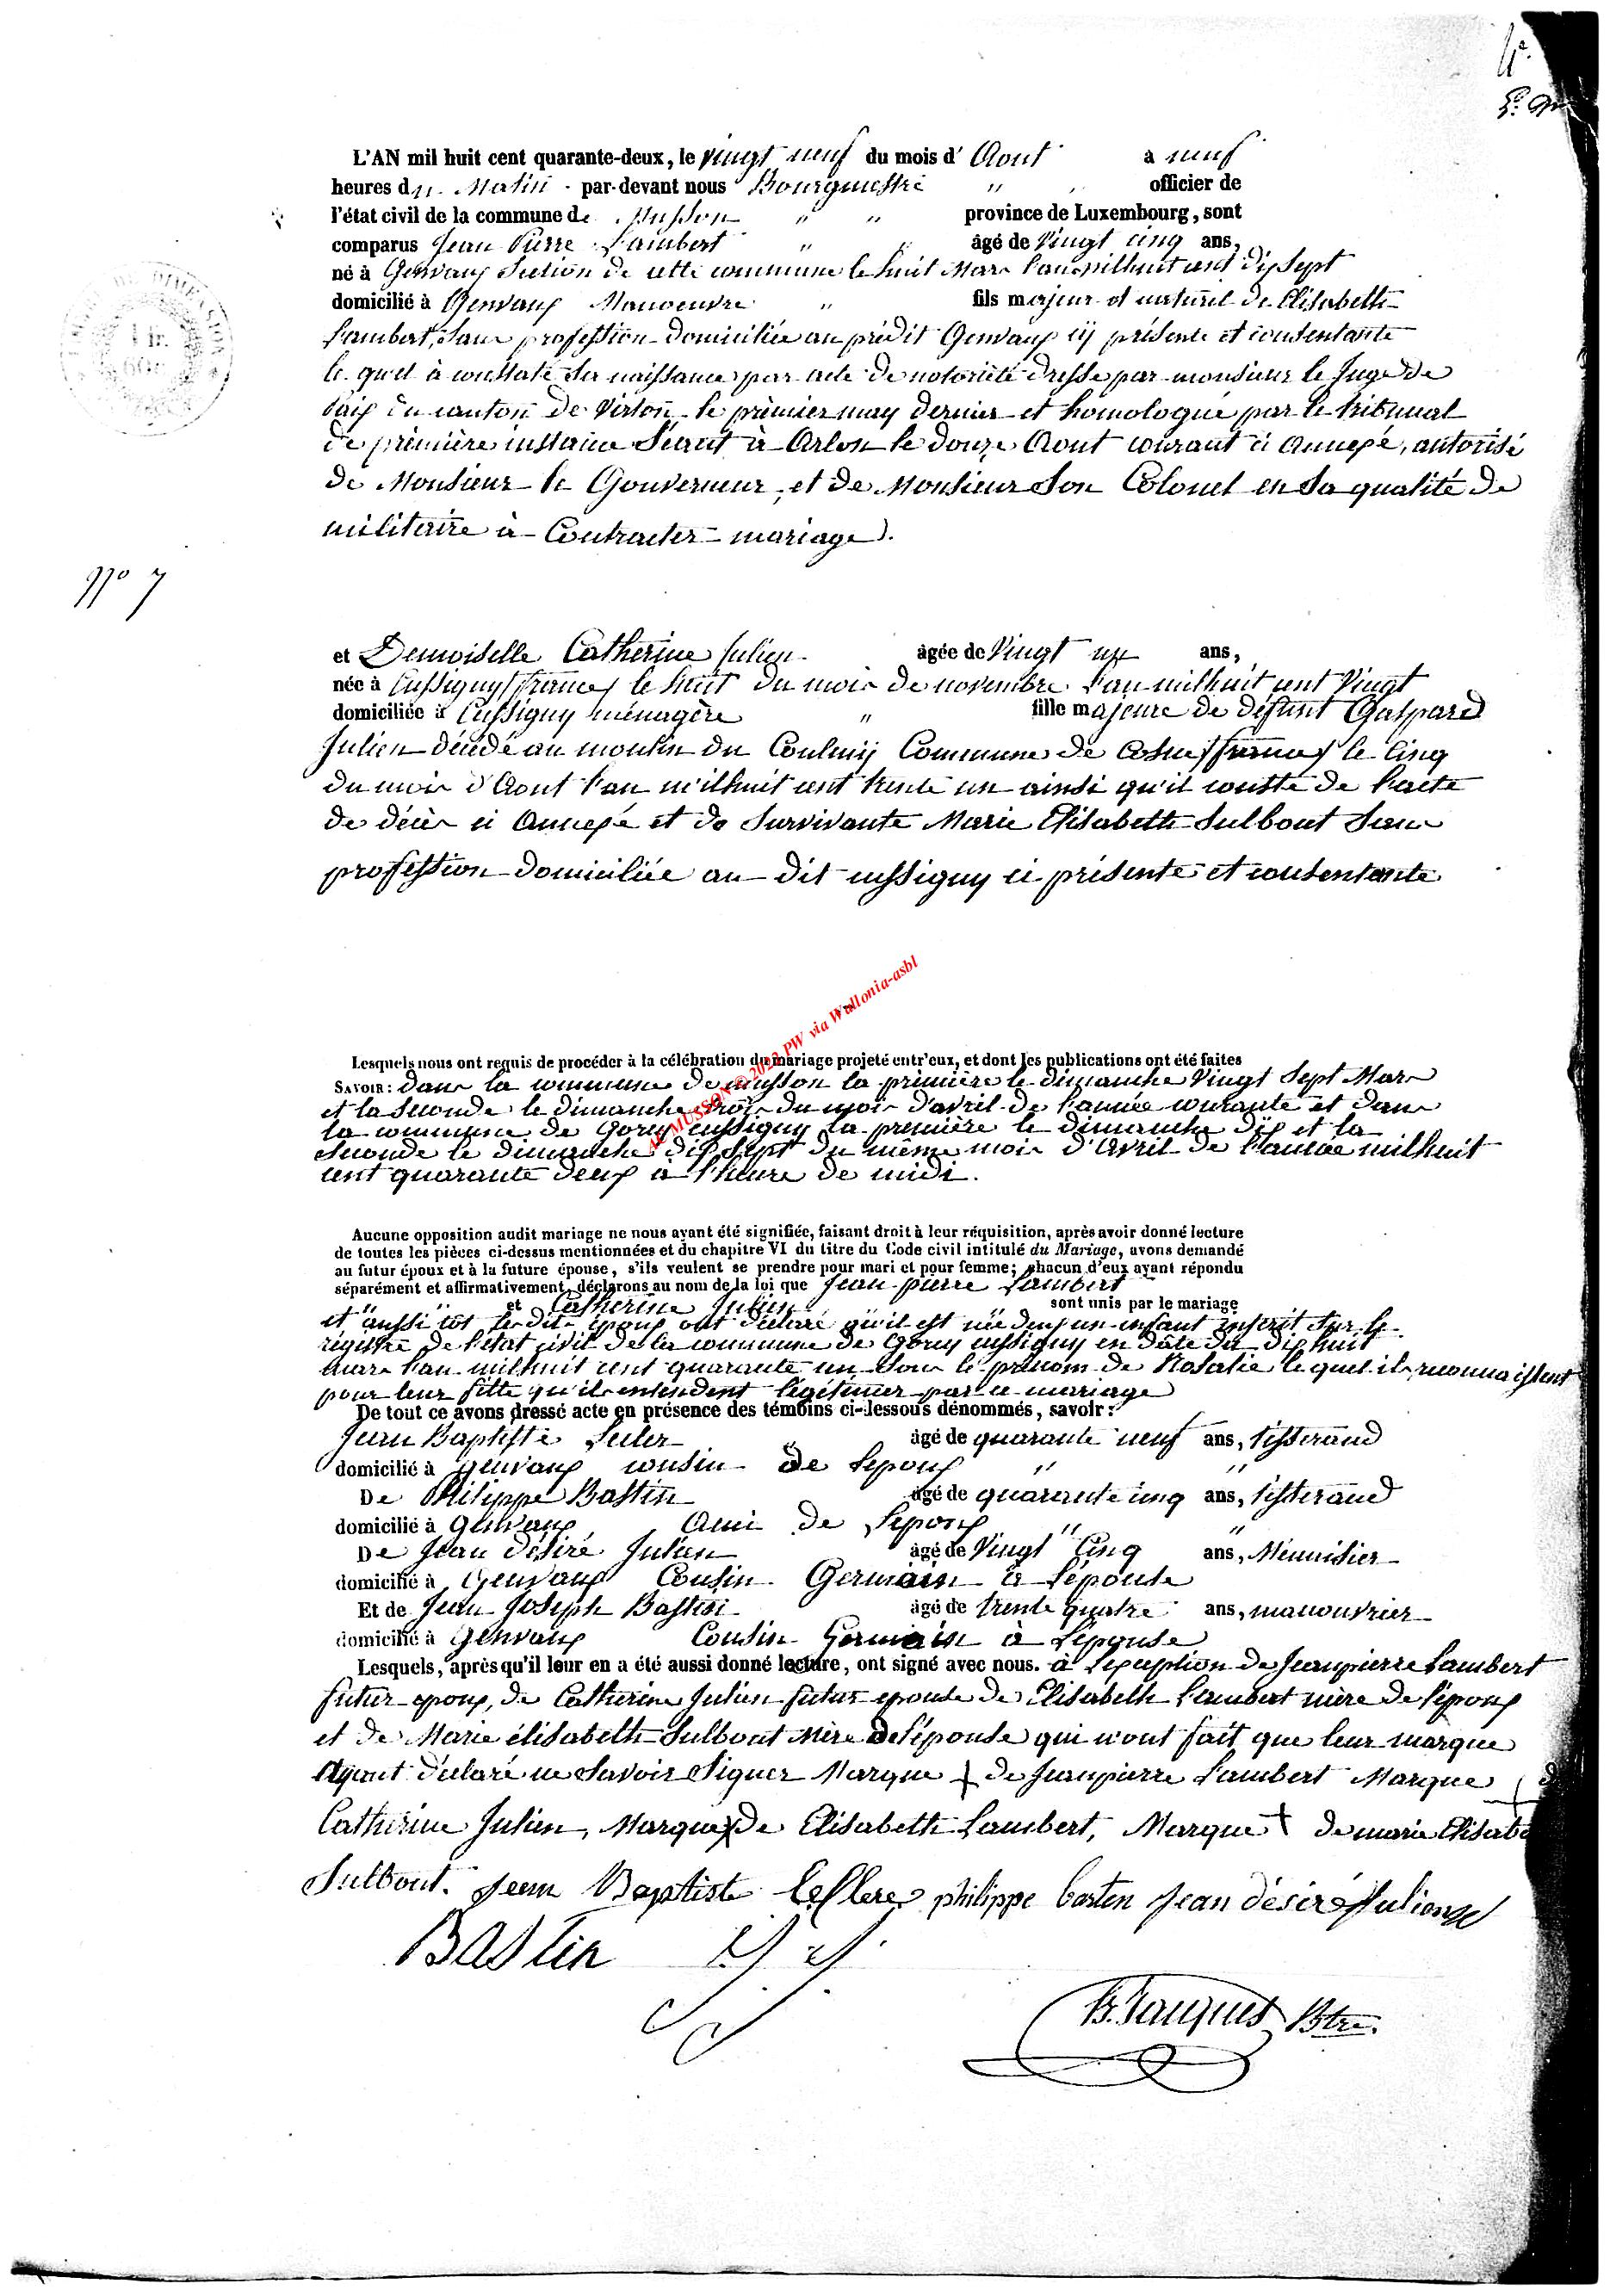 4e
L'AN mil huit cent quarante-deux, le vingt neuf du mois d' Aout à neuf
heures du Matin par-devant nous Bourguestre officier de
l'état civil de la commune de Musson province de Luxembourg, sont
comparus Jean Pierre Lambert âgé de vingt cinq ans,
né à Genvaux Section de cette commune le huit Mars l'an milhuit cent dix Sept
domicilié à Genvaux Manoeuvre fils majeur et naturel de Elisabeth
Lambert, Sans profession domiciliée au prédit Genvaux cy présente et consentante
le quel à constaté sa naissance par acte de notoriété dressé par monsieur le Juge de
Paix du canton de Virton le prémier may dernier et homologué par le tribunal
de prémière instance Séant à Arlon le douze Aout courant ci annexé, autorisé
de Monsieur le Gouverneur, et de Monsieur Son Colonel en Sa qualité de
militaire à Contracter mariage.
N° 7
et Demoiselle Catherine Julien agée de Vingt un ans,
née à Cussigny (france) le huit du mois de novembre l'an milhuit cent Vingt
domiciliée à Cussigny ménagère fille majeure de défunt Gaspard
Julien décédé au moulin du Coulmy Commune de Cosne (france) le Cinq
du mois d'Aout l'an milhuit cent trente un ainsi qu'il conste de l'acte
de décès ci Annexé et de Survivante Marie Elisabeth Sulbout Sans
profession domiciliée au dit cussigny ci présente et consentante
AE MUSSON © 2023 PW via Wallonia-asbl
Lesquels nous ont requis de procéder à la célébration du mariage projeté entr'eux, et dont les publications ont été faites
SAVOIR : dans la commune de musson la première le dimanche Vingt Sept Mars
et la Seconde le dimanche trois du mois d'avril de l'année courante et dans
la commune de Gorcy cussigny la première le dimanche dix et la
Seconde le dimanche dix Sept du même mois d'Avril de l'année milhuit
cent quarante deux à l'heure de midi.
Aucune opposition audit mariage ne nous ayant été signifiée, faisant droit à leur réquisition, après avoir donné lecture
de toutes les pièces ci-dessus mentionnées et du chapitre VI du titre du Code civil intitulé du Mariage, avons demandé
au futur époux et à la future épouse, s'ils veulent se prendre pour mari et pour femme; chacun d'eux ayant répondu
séparément et affirmativement, déclarons au nom de la loi que Jean pierre Lambert
et Catherine Julien sont unis par le mariage
et aussi tôt les dits époux ont déclaré qu'il est né d'eux un enfant inscrit Sur le
régistre de l'état civil de la commune de Gorcy cussigny en date du dix huit
mars l'an milhuit cent quarante un Sous le prénom de Rosalie le quel ils reconnaissent
pour leur fille qu'ils entendent légitimer par ce mariage
De tout ce avons dressé acte en présence des témoins ci-dessous dénommés, savoir :
Jean Baptiste agé de quarante neuf ans, tisserand
domicilié à Genvaux cousin de l'epoux
De Philippe Bastin agé de quarante cinq ans, tisserand
domicilié à Genvaux Ami de l'epoux
De Jean désiré Julien agé de Vingt Cinq ans, Ménuisier
domicilié à Genvaux Cousin Germain à l'épouse
Et de Jean Joseph Bastin agé de trente quatre ans, manouvrier
domicilié à Genvaux Cousin Germain à l'épouse
Lesquels, après qu'il leur en a été aussi donné lecture, ont signé avec nous. à l'exception de Jeanpierre Lambert
futur epoux, de Catherine Julien futur epouse de Elisabeth Lambert mère de l'époux
et de Marie élisabeth Sulbout Mère de l'épouse qui n'ont fait que leur marque
Ayant déclaré ne Savoir Signer Marque + de Jeanpierre Lambert Marque + d
Catherine Julien, Marque x de Elisabeth Lambert, Marque + de marie Elisabe
Sulbout. Jean Baptiste leClere philippe basten Jean désiré Julien
BAStin J J
Jauquet Btre.